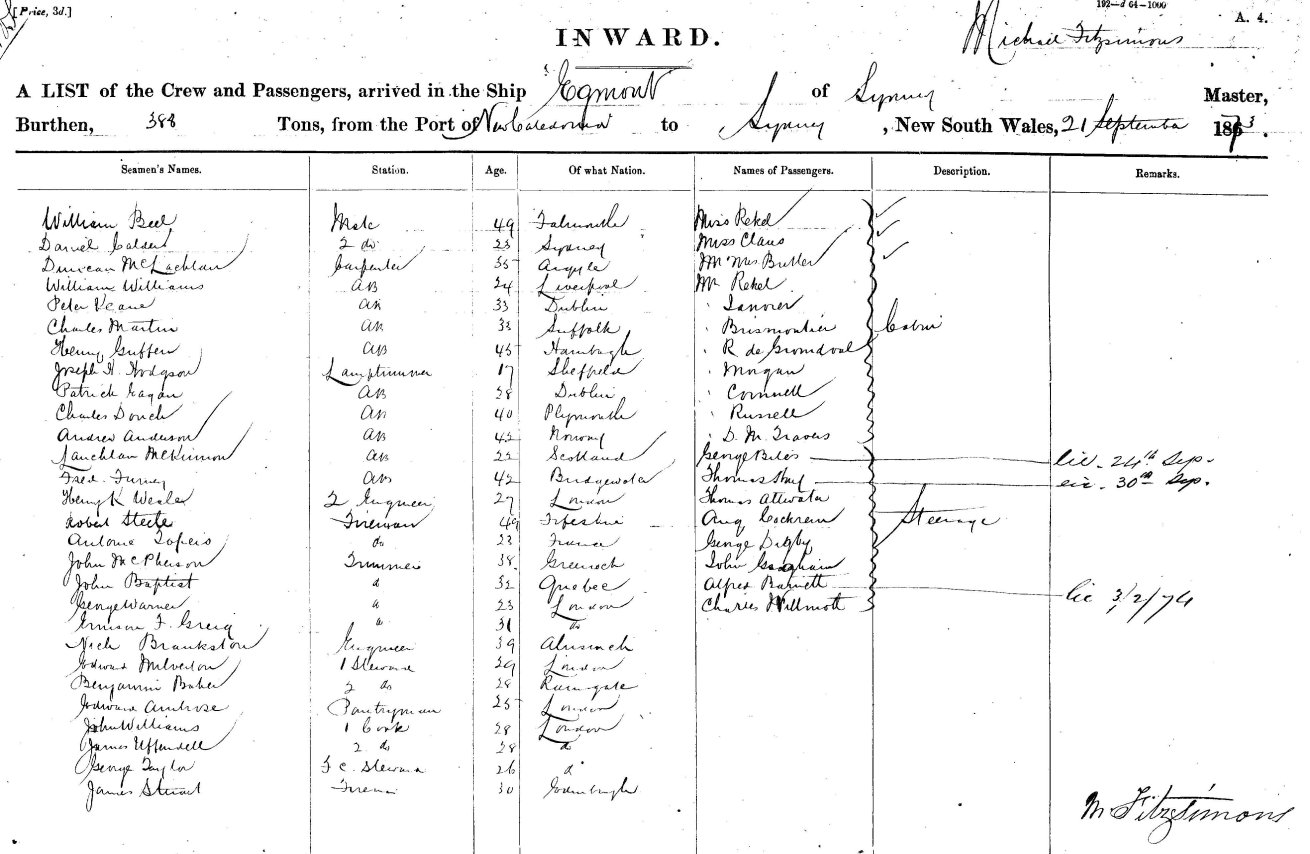 [Price, 3d.]
192—d 64—1000
A. 4.
INWARD.
Michael Fitzsimons
A LIST of the Crew and Passengers, arrived in the Ship Egmont of Sydney Master,
Burthen, 388 Tons, from the Port of New Caledonia to Sydney, New South Wales, 21 September 1873.
Seamen's Names. Station. Age. Of what Nation. Names of Passengers. Description. Remarks.
William Beel Mate 49 Falmouth Miss Rekel
Daniel Calder 2 do 23 Sydney Miss Claus
Duncan McLachlan Carpenter 35 Argyle Mr Mrs Butler
William Williams AB 24 Liverpool Mr Rekel
Peter Keane AB 33 Dublin " Janvier
Charles Martin AB 33 Suffolk " Brismontier Cabin
Henry Guffen AB 45 Hamburgh " R de Gromdoval
Joseph H. Hodgson Lamptrimmer 17 Sheffield " Morgan
Patrick Eagan AB 28 Dublin " Cornwell
Charles Douch AB 40 Plymouth " Russell
Andrew Anderson AB 42 Norway " D. M. Travers
Lauchlan McKinnon AB 22 Scotland George Biles lic. 24th Sep.
Fred. Turney AB 42 Bridgewater Thomas lic. 30th Sep.
Henry K Wesler 2 Engineer 27 London Thomas Attwater
Robert Steele Fireman 49 Fifeshire Aug Cochrem Steerage
Antonie Topers do 23 France George Digby
John McPherson Trimmer 38 Greenock John
John Baptist d 32 Quebec Alfred Barnett lic 3/2/74
George Warner d 23 London Charles Willmott
F. Greig d 31 do
Nich Brankston Engineer 39 Alnwick
Edward Milverton 1 Steward 29 London
Benjamin Baker 2 do 28 Ramsgate
Edward Ambrose Pantryman 25 London
John Williams 1 Cook 28 London
James Uffendell 2 do 28 do
George Taylor F C. Steward 26 d
James Stewart Fireman 30 Edinburgh
M Fitzsimons